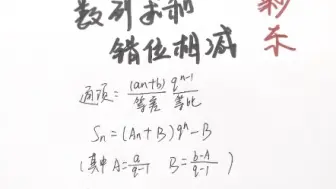 数列求和
错位相减
秒杀
通项 = (an+b)/等差 q^{n-1}/等比
Sn = (An+B) q^n - B
(其中 A = a/(q-1) B = (b-A)/(q-1) )